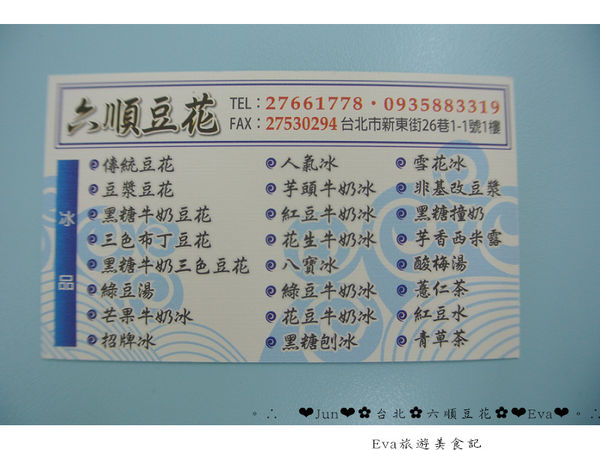 六順豆花
TEL：27661778・0935883319
FAX：27530294 台北市新東街26巷1-1號1樓
冰品
傳統豆花
豆漿豆花
黑糖牛奶豆花
三色布丁豆花
黑糖牛奶三色豆花
綠豆湯
芒果牛奶冰
招牌冰
人氣冰
芋頭牛奶冰
紅豆牛奶冰
花生牛奶冰
八寶冰
綠豆牛奶冰
花豆牛奶冰
黑糖刨冰
雪花冰
非基改豆漿
黑糖撞奶
芋香西米露
酸梅湯
薏仁茶
紅豆水
青草茶
。∴ ❤Jun❤✿台北✿六順豆花✿❤Eva❤。∴
Eva旅遊美食記